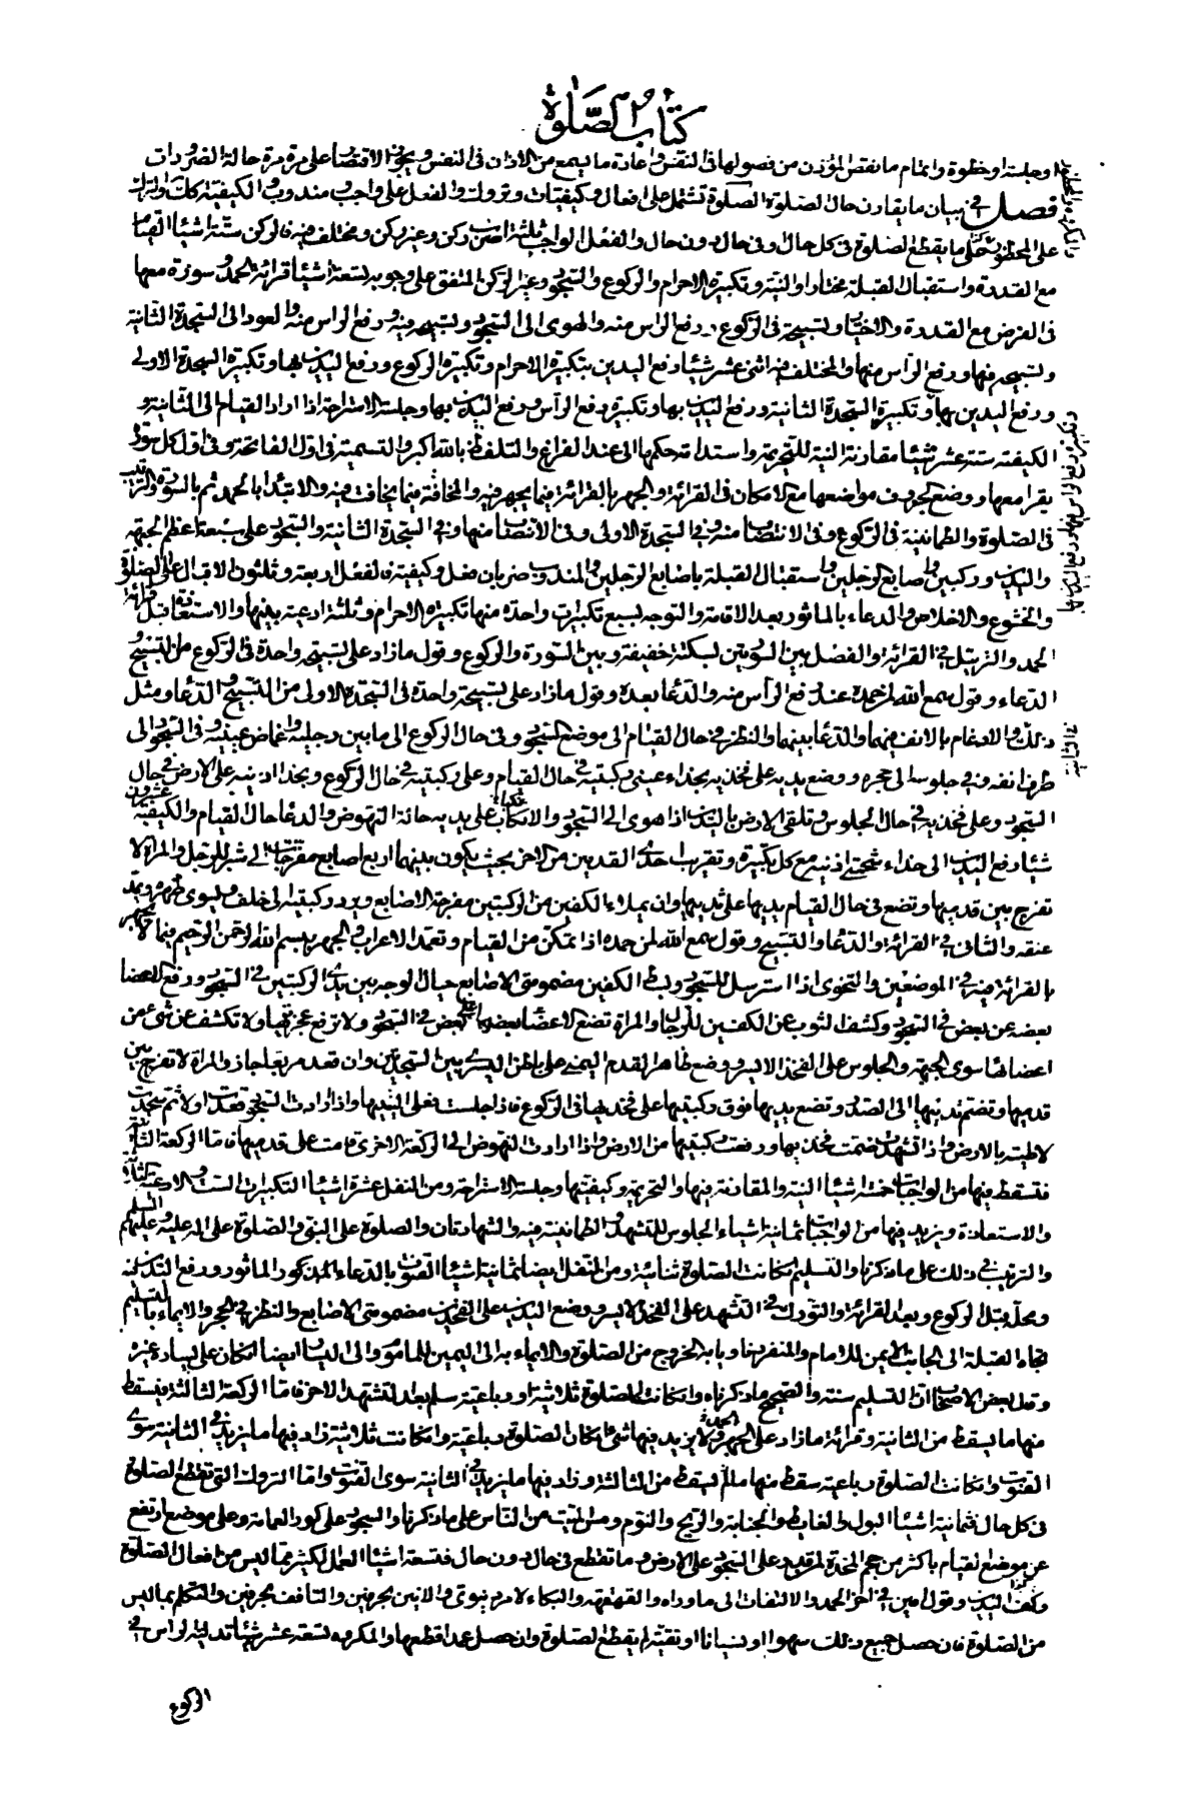 كتاب الصلوة
او جلسة او خطوة واتمام ما نقص المؤذن من فصولها فى النفس واعادة ما يسمع من الاذان فى النفس ويجوز الاقتصار على مرة مرة حالة الضرورات
فصل فى بيان ما يقارن حال الصلوة الصلوة تشتمل على افعال وكيفيات وتروك والفعل على واجب ومندوب والكيفية كذلك والترك
على المحظور على ما يقطع الصلوة فى كل حال وفى حال دون حال والفعل الواجب ثلثة اضرب ركن وغير ركن ومختلف فيه فالركن ستة اشياء القيام
مع القدرة واستقبال القبلة مختارا والنية وتكبيرة الاحرام والركوع والسجود وغير الركن المتفق على وجوبه تسعة اشياء قرائة الحمد وسورة معها
فى الفرض مع القدرة والاختيار وتسبيحة فى الركوع ورفع الراس منه والهوى الى السجود وتسبيحه فيه ورفع الراس منه والعود الى السجدة الثانية
وتسبيحه فيها ورفع الراس منها والمختلف فيه اثنى عشر شيئا رفع اليدين بتكبيرة الاحرام وتكبيرة الركوع ورفع اليدين بها وتكبيرة السجدة الاولى
ورفع اليدين بها وتكبيرة السجدة الثانية ورفع اليدين بها وتكبيرة رفع الراس ورفع اليدين بها وجلسة الاستراحة اذا اراد القيام الى الثانية و
الكيفية ستة عشر شيئا مقارنة النية للتحريمة واستدامة حكمها الى عند الفراغ والتلفظ بالله اكبر والتسمية فى اول الفاتحة وفى اول كل سورة
يقرا معها ووضع الحروف مواضعها مع الامكان فى القرائة والجهر بالقرائة فيما يجهر فيه والمخافتة فيما يخافت فيه والابتداء بالحمد ثم بالسورة والترتيب
فى الصلوة والطمانينة فى الركوع وفى الانتصاب منه وفى السجدة الاولى وفى الانتصاب منها وفى السجدة الثانية والسجود على سبعة اعظم الجبهة
واليدين وركبتين واصابع الرجلين واستقبال القبلة باصابع الرجلين والمندوب ضربان فعل وكيفية فالفعل اربعة وثلثون الاقبال على الصلوة
والخشوع والاخلاص والدعاء بالماثور بعد الاقامة والتوجه بسبع تكبيرات واحدة منها تكبيرة الاحرام وثلثة ادعية بينها والاستعاذة قبل قرائة
الحمد والترتيل فى القرائة والفصل بين السورتين بسكتة خفيفة وبين السورة والركوع وقول ما زاد على تسبيحة واحدة فى الركوع من التسبيح و
الدعاء وقول سمع الله لمن حمده عند رفع الراس منه والدعاء بعده وقول ما زاد على تسبيحة واحدة فى السجدة الاولى من التسبيح والدعاء ومثل
ذلك والارغام بالانف فيهما والدعاء بينهما والنظر فى حال القيام الى موضع السجود وفى حال الركوع الى ما بين رجليه واغماض عينيه وفى السجود الى
طرف انفه وفى جلوسه الى حجره ووضع يديه على فخذيه بحذاء عينى ركبتيه فى حال القيام وعلى ركبتيه فى حال الركوع وبحذاء اذنيه على الارض فى حال
السجود وعلى فخذيه فى حال الجلوس وتلقى الارض باليدين اذا هوى الى السجود والاتكاء على يديه حالة النهوض والدعاء حال القيام والكيفية عشرون
شيئا رفع اليدين الى حذاء شحمتى اذنيه مع كل تكبيرة وتقريب احدى القدمين من الاخرى بحيث يكون بينهما اربع اصابع مفرجات الى شبر للرجل والمراة لا
تفرج بين قدميها وتضع فى حال القيام يديها على ثدييها وان يملاء الكفين من الركبتين مفرجة الاصابع ويرد ركبتيه الى خلف ويسوى ظهره ويمد
عنقه والتانى فى القرائة والدعاء والتسبيح وقول سمع الله لمن حمده اذا تمكن من القيام وتعمد الاعراب والجهر ببسم الله الرحمن الرحيم فيما لا يجهر
بالقرائة فيه فى الموضعين والتخوى اذا استرسل للسجود وبسط الكفين مضمومتى الاصابع حيال الوجه بين يدى الركبتين فى السجود ورفع الاعضا
بعضه عن بعض فى السجود وكشف الثوب عن الكفين للرجال والمراة تضع الاعضاء بعضها على بعض فى السجود ولا ترفع عجزتها ولا تكشف عن شئ من
اعضائها سوى الجبهة والجلوس على الفخذ الايسر ووضع ظاهر القدم اليمنى على باطن اليسرى بين السجدتين وان قعد مربعا جاز والمراة لا تفرج بين
قدميها وتضم ثدييها الى الصدر وتضع يديها فوق ركبتيها على فخذيها فى الركوع فاذا جلست فعلى اليتيها واذا ارادت السجود قعدت اولا ثم سجدت
لاطية بالارض واذا تشهدت ضمت فخذيها ورفعت ركبتيها من الارض واذا ارادت النهوض الى الركعة الاخرى قامت على قدميها فاما الركعة الثانية
فتسقط فيها من الواجبات خمسة اشياء النية والمقارنة فيها والتحريمة وكيفيتها وجلسة الاستراحة ومن النفل عشرة اشياء التكبيرات الست والادعية الثلثة
والاستعاذة ويزيد فيها من الواجبات ثمانية اشياء الجلوس للتشهد والطمانينة فيه والشهادتان والصلوة على النبى والصلوة على اله عليه وعليهم السلم
والترتيب فى ذلك على ما ذكرنا والتسليم ان كانت الصلوة ثنائية ومن النفل ايضا ثمانية اشياء القنوت بالدعاء المذكور الماثور ورفع اليدين له
ومحله قبل الركوع وبعد القرائة والتورك فى التشهد على الفخذ الايسر ووضع اليدين على الفخذين مضمومتى الاصابع والنظر فى الحجر والايماء بالتسليم
تجاه القبلة الى الجانب الايمن للامام والمنفرد ناويا به الخروج من الصلوة والايماء به الى اليمين للماموم والى اليسار ايضا ان كان على يساره غيره
وقال بعض الاصحاب ان التسليم سنة والصحيح ما ذكرناه وان كانت الصلوة ثلاثية او رباعية سلم بعد التشهد الاخر فاما الركعة الثالثة فيسقط
منها ما يسقط من الثانية وقرائة ما زاد على الحمد والجهر ولا يزيد فيها شئ ان كان الصلوة رباعية وان كانت ثلاثية زاد فيها ما يزيد فى الثانية سوى
القنوت وان كانت الصلوة رباعية سقط منها ما لم يسقط من الثالثة وزاد فيها ما يزيد فى الثانية سوى القنوت واما التروك التى تقطع الصلوة
فى كل حال فثمانية اشياء البول والغايط والجنابة والريح والنوم ومس الميت من الناس على ما ذكرنا والسجود على كور العمامة وعلى موضع ارتفع
عن موضع القيام باكثر من حجم المخدة لم قدر على السجود على الارض وما تقطع فى حال دون حال فتسعة اشياء العمل الكثير مما ليس من افعال الصلوة
وكتف اليدين وقول امين فى اخر الحمد والالتفات الى ما وراه والقهقهة والبكاء لامر دنيوى والانين بحرفين والتافف بحرفين والتكلم بما ليس
من الصلوة فان حصل جميع ذلك سهوا او نسيانا او تقية لم يقطع الصلوة وان حصل عمدا قطعها والمكروه تسعة عشر شيئا تدلية الراس فى
الركوع
والمكروه والمحظور
وتكبيرة رفع الراس منها ورفع اليدين بها
فى الثانية